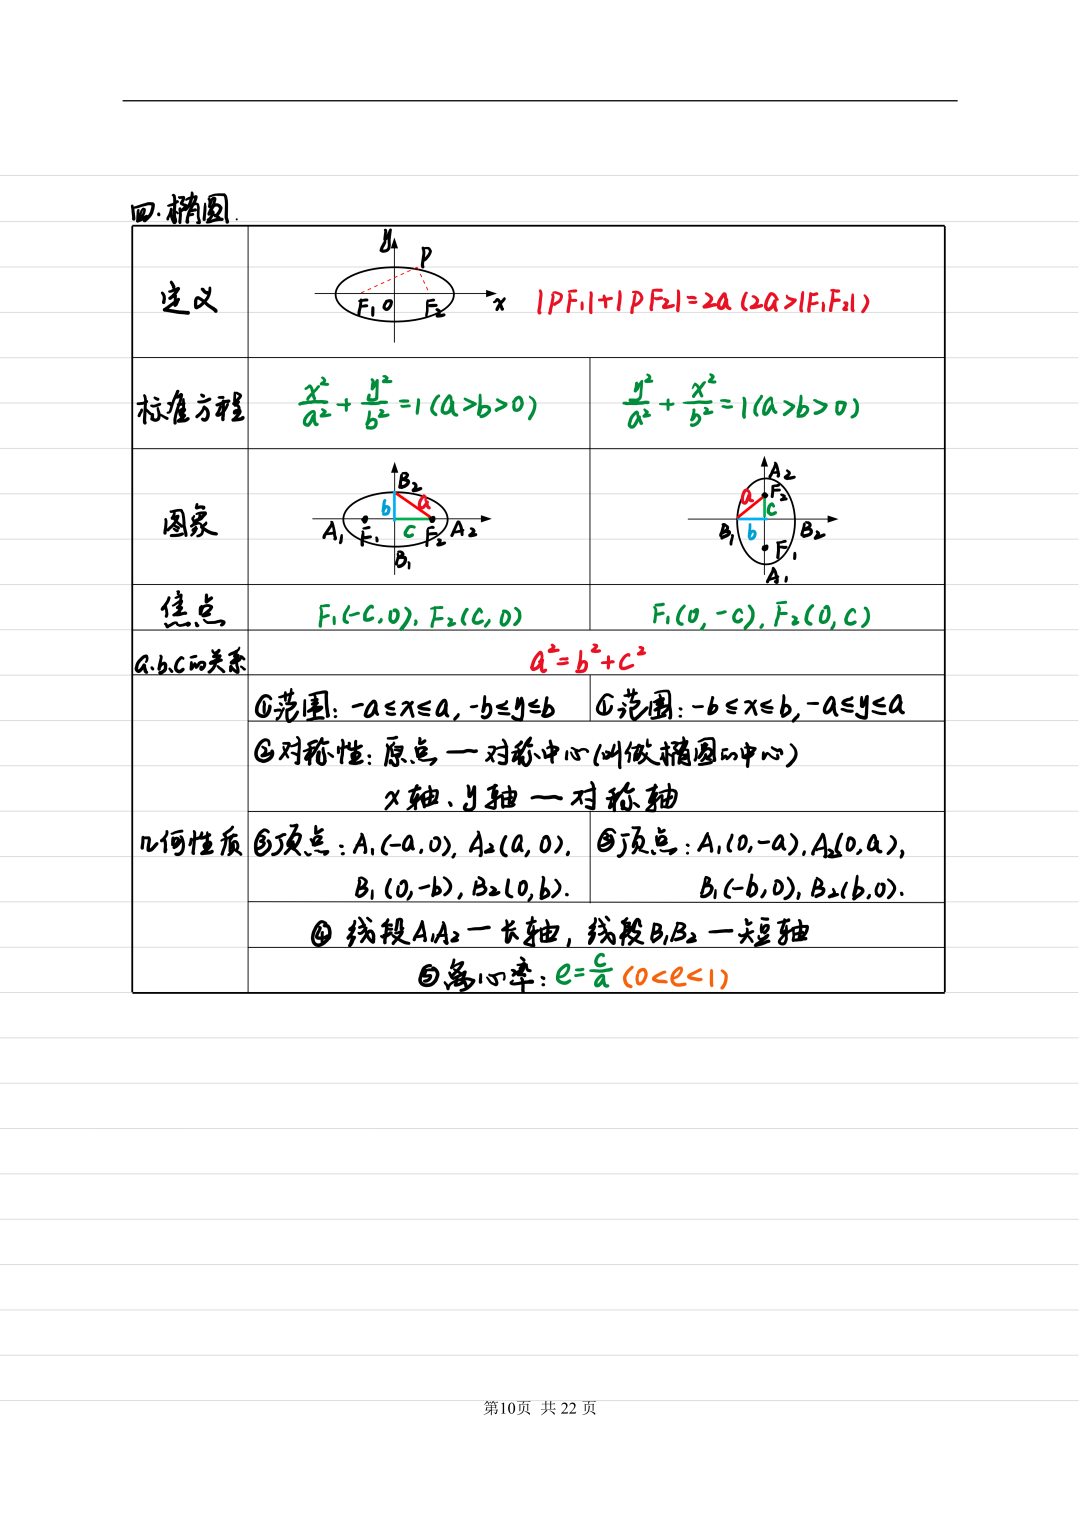 四.椭圆.
定义
y
P
F₁ 0 F₂ x
|PF₁|+|PF₂|=2a (2a>|F₁F₂|)
标准方程
x²/a² + y²/b² =1 (a>b>0)
y²/a² + x²/b² =1 (a>b>0)
图象
B₂
b a
A₁ F₁ c F₂ A₂
B₁
A₂
a F₂
c
B₁ b B₂
F₁
A₁
焦点
F₁(-c,0), F₂(c,0)
F₁(0,-c), F₂(0,c)
a.b.c的关系
a²=b²+c²
几何性质
①范围: -a≤x≤a, -b≤y≤b
①范围: -b≤x≤b, -a≤y≤a
②对称性: 原点 — 对称中心(叫做椭圆的中心)
x轴、y轴 — 对称轴
③顶点: A₁(-a,0), A₂(a,0).
B₁(0,-b), B₂(0,b).
③顶点: A₁(0,-a), A₂(0,a),
B₁(-b,0), B₂(b,0).
④ 线段A₁A₂ — 长轴, 线段B₁B₂ — 短轴
⑤离心率: e=c/a (0<e<1)
第10页 共 22 页